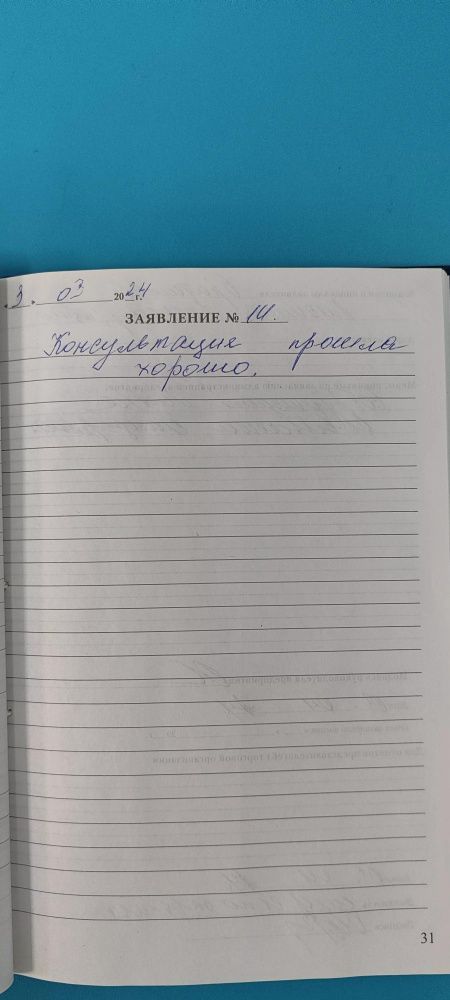 3. 03 2024 г.
ЗАЯВЛЕНИЕ № 14.
Консультация прошла
хорошо.
31